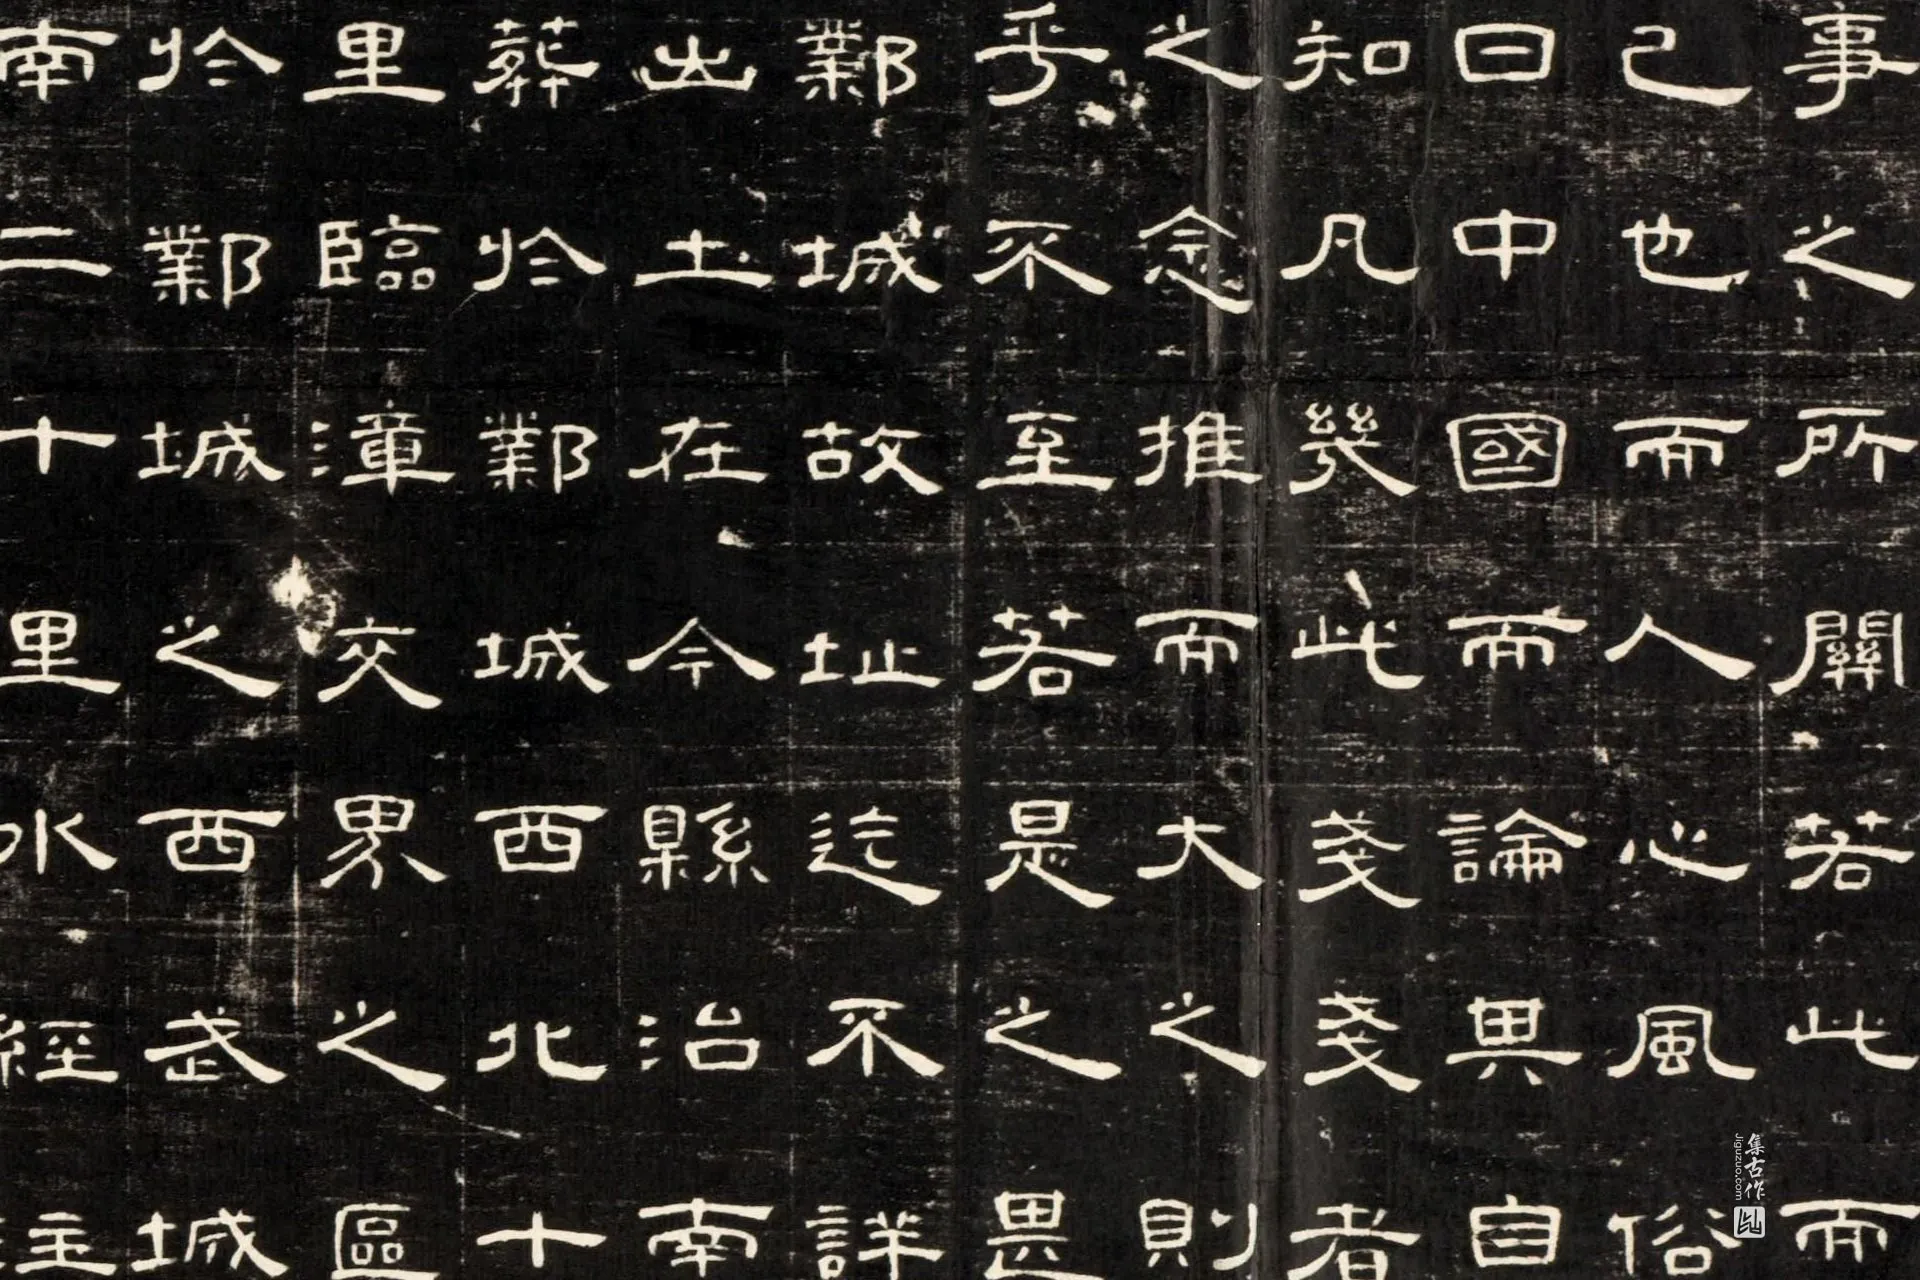 事之所關若此而
已也而人心風俗
曰中國而論與自
知凡幾此戔戔者
之念推而大之則
乎不至若是之畏
鄴城故址迄不詳
出土在今縣治南
葬於鄴城西北十
里臨漳交界之區
於鄴城之西武城
南二十里水經注
集古作
Jiguzuo.com